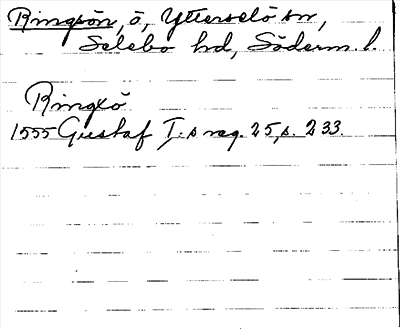 Ringsön, ö, Ytterselö sn,
Selebo hd, Söderm. l.
Ringsö
1555 Gustaf I:s reg. 25, s. 233.